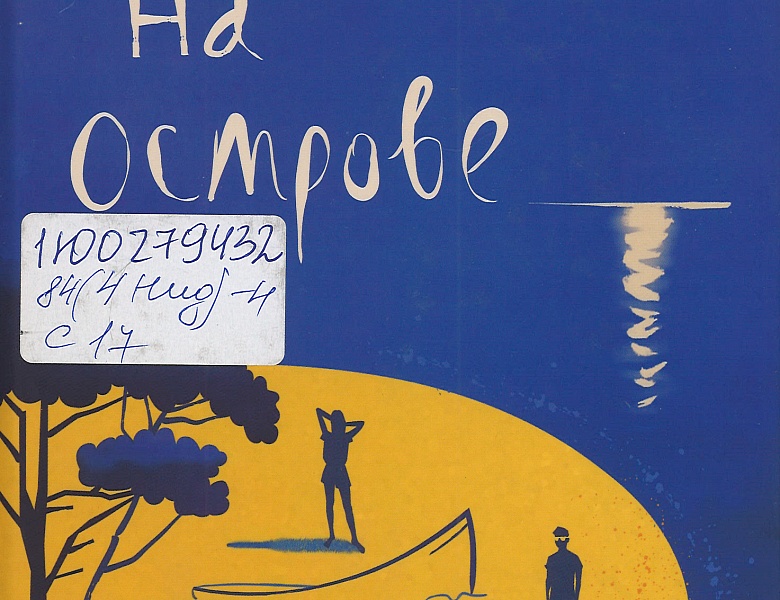 На
острове
1Ю0279432
84(4 Нид)-4
С 17